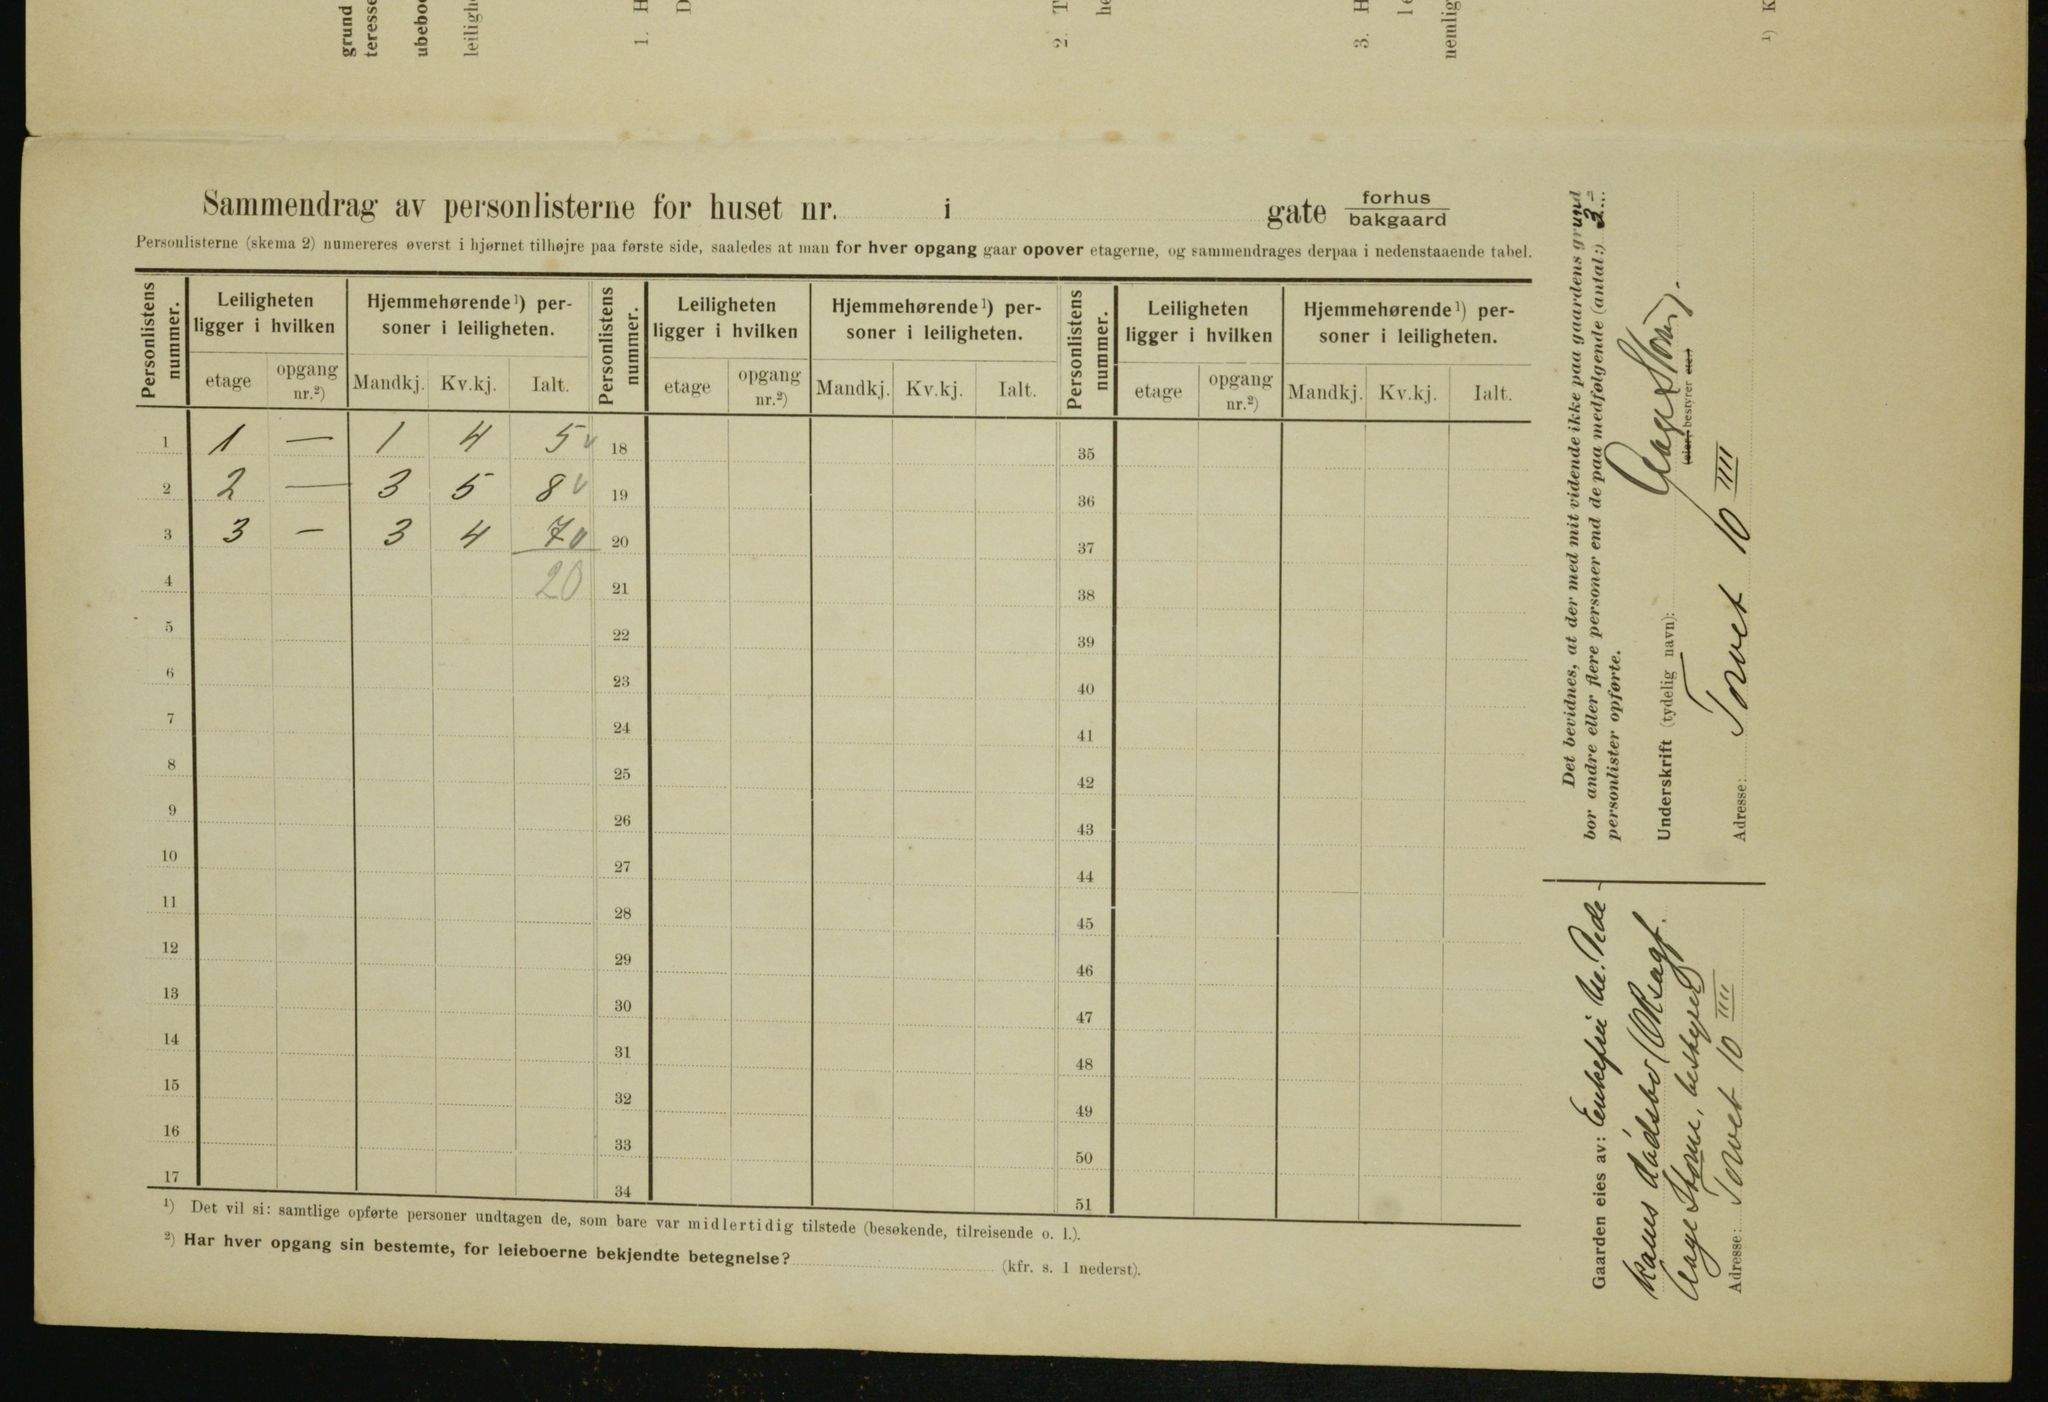 grund
teresse
ubeboe
leiligh
1. H
D
2. T
he
3. H
le
nemlig
1) K
Sammendrag av personlisterne for huset nr. i gate forhus
bakgaard
Personlisterne (skema 2) numereres øverst i hjørnet tilhøjre paa første side, saaledes at man for hver opgang gaar opover etagerne, og sammendrages derpaa i nedenstaaende tabel.
Personlistens nummer. Leiligheten ligger i hvilken Hjemmehørende 1) personer i leiligheten. Personlistens nummer. Leiligheten ligger i hvilken Hjemmehørende 1) personer i leiligheten. Personlistens nummer. Leiligheten ligger i hvilken Hjemmehørende 1) personer i leiligheten.
etage opgang nr.2) Mandkj. Kv.kj. Ialt. etage opgang nr.2) Mandkj. Kv.kj. Ialt. etage opgang nr.2) Mandkj. Kv.kj. Ialt.
1 1 — 1 4 5 v 18 35
2 2 — 3 5 8 v 19 36
3 3 — 3 4 7 v 20 37
4 20 21 38
5 22 39
6 23 40
7 24 41
8 25 42
9 26 43
10 27 44
11 28 45
12 29 46
13 30 47
14 31 48
15 32 49
16 33 50
17 34 51
1) Det vil si: samtlige opførte personer undtagen de, som bare var midlertidig tilstede (besøkende, tilreisende o. l.).
2) Har hver opgang sin bestemte, for leieboerne bekjendte betegnelse? (kfr. s. 1 nederst).
Det bevidnes, at der med mit vidende ikke paa gaardens grund
bor andre eller flere personer end de paa medfølgende (antal:) 3
personlister opførte.
Underskrift (tydelig navn): Aage Storm.
(eier,) bestyrer etc.)
Adresse: Torvet 10 IIII
Gaarden eies av: Enkefru
Aage Storm, bestyrer
Adresse: Torvet 10 IIII